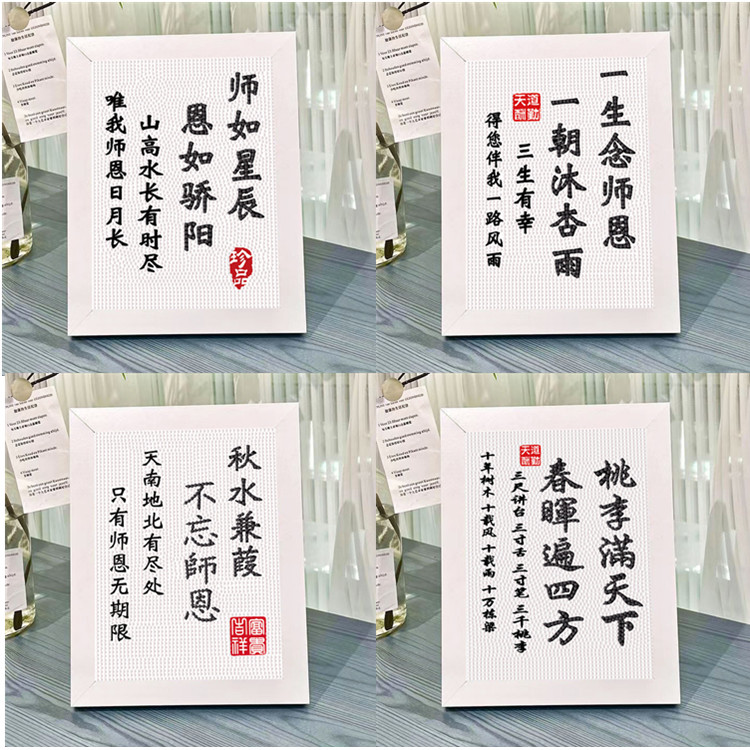 师如星辰
恩如骄阳
山高水长有时尽
唯我师恩日月长
珍品
一生念师恩
一朝沐杏雨
天道酬勤
三生有幸
得您伴我一路风雨
秋水兼葭
不忘師恩
天南地北有尽处
只有师恩无期限
富貴吉祥
桃李滿天下
春暉遍四方
天道酬勤
三尺讲台 三寸舌 三寸笔 三千桃李
十年树木 十载风 十载雨 十万栋梁